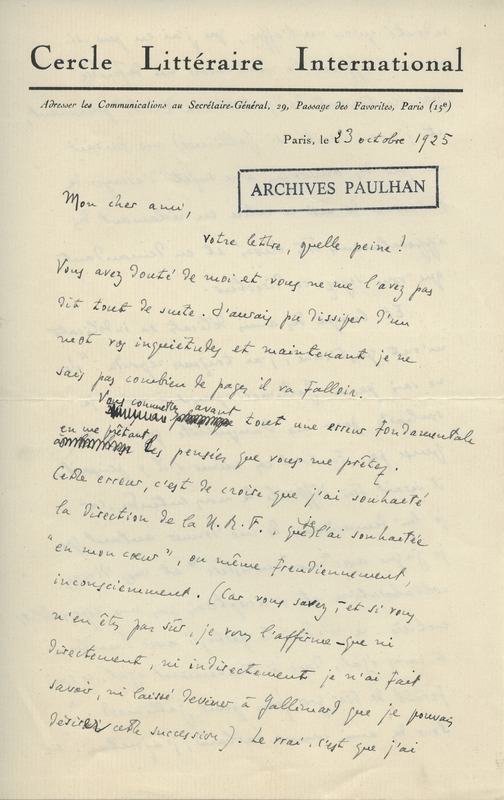 Cercle Littéraire International
Adresser les Communications au Secrétaire-Général, 29, Passage des Favorites, Paris (15e)
Paris, le 23 octobre 1925
ARCHIVES PAULHAN
Mon cher ami,
votre lettre, quelle peine !
Vous avez douté de moi et vous ne me l'avez pas
dit tout de suite. J'aurais pu dissiper d'un
mot vos inquiétudes et maintenant je ne
sais pas combien de pages il va falloir.
Vous commettez avant
tout une erreur fondamentale
en me prêtant
les pensées que vous me prêtez.
Cette erreur, c'est de croire que j'ai souhaité
la direction de la N.R.F., que je l'ai souhaitée
"en mon cœur", ou même freudiennement,
inconsciemment. (Car vous savez, et si vous
n'en êtes pas sûr, je vous l'affirme – que ni
directement, ni indirectement je n'ai fait
savoir, ni laissé deviner à Gallimard que je pouvais
désirer cette succession). Le vrai, c'est que j'ai